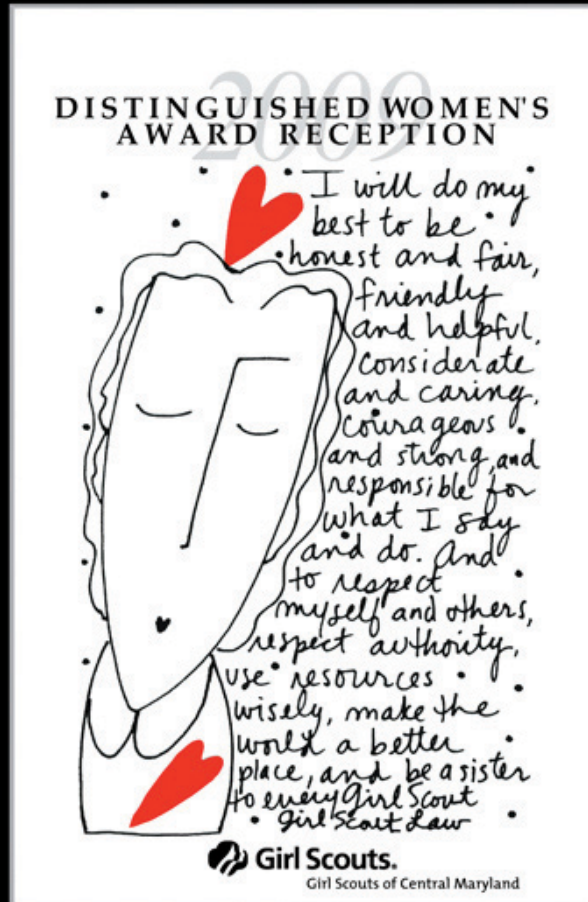 2009
DISTINGUISHED WOMEN'S
AWARD RECEPTION
I will do my
best to be
honest and fair,
friendly
and helpful,
considerate
and caring,
courageous
and strong, and
responsible for
what I say
and do. And
to respect
myself and others,
respect authority,
use resources
wisely, make the
world a better
place, and be a sister
to every Girl Scout
Girl Scout Law
Girl Scouts.
Girl Scouts of Central Maryland